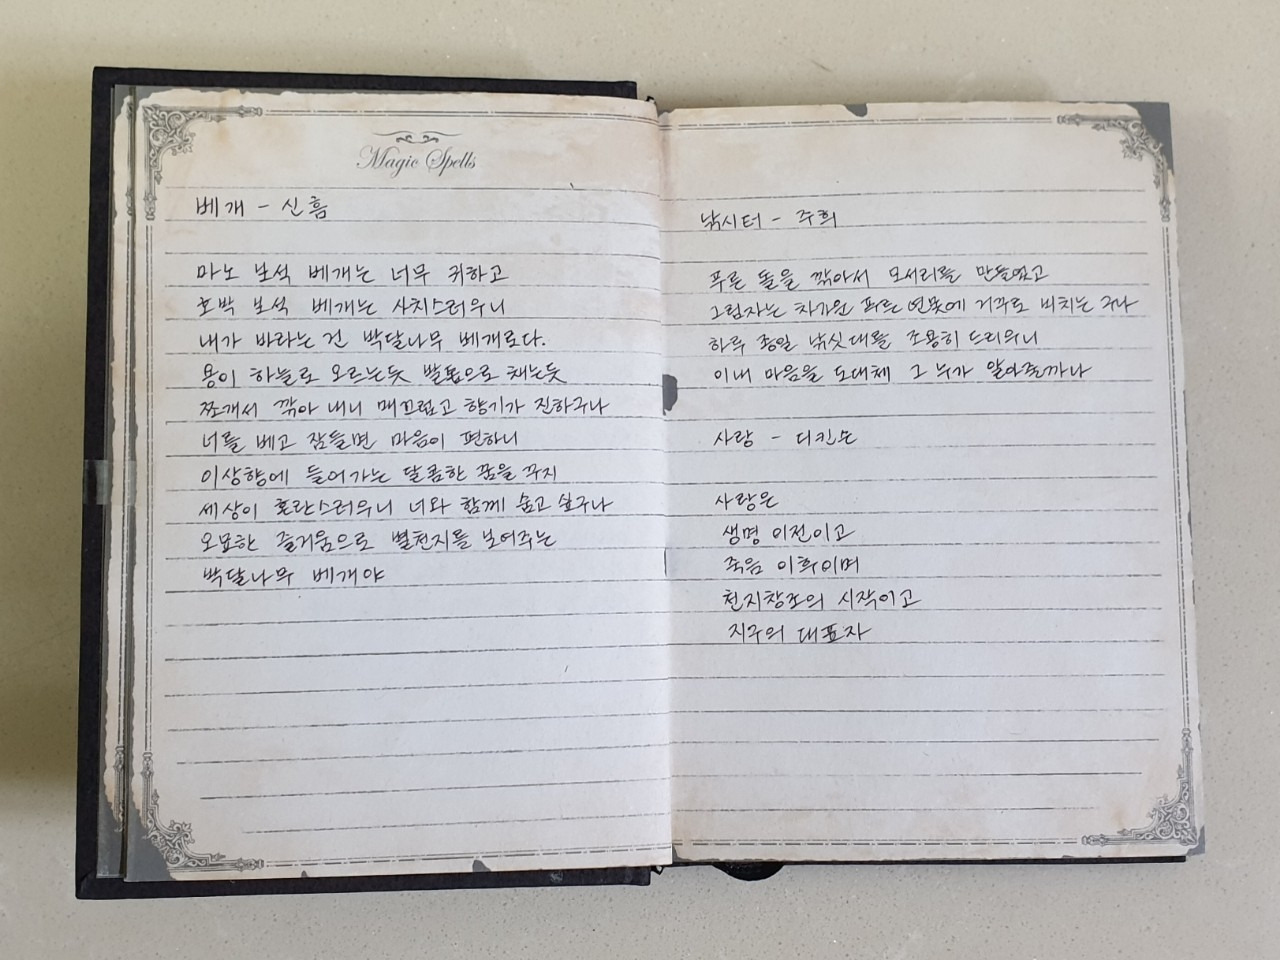 Magic Spells
베개 - 신흠
마노 보석 베개는 너무 귀하고
호박 보석 베개는 사치스러우니
내가 바라는 건 박달나무 베개로다.
용이 하늘로 오르는듯 발톱으로 채는듯
쪼개서 깎아 내니 매끄럽고 향기가 진하구나
너를 베고 잠들면 마음이 편하니
이상향에 들어가는 달콤한 꿈을 꾸지
세상이 혼란스러우니 너와 함께 숨고 싶구나
오묘한 즐거움으로 별천지를 보여주는
박달나무 베개야
낚시터 - 주희
푸른 돌을 깎아서 모서리를 만들었고
그림자는 차가운 푸른 연못에 거꾸로 비치는 구나
하루 종일 낚싯대를 조용히 드리우니
이내 마음을 도대체 그 누가 알아줄까나
사랑 - 디킨슨
사랑은
생명 이전이고
죽음 이후이며
천지창조의 시작이고
지구의 대표자